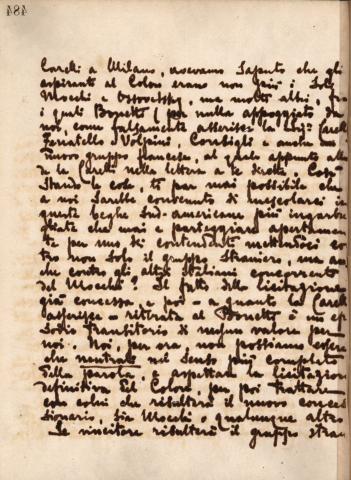 484
Carelli a Milano, avevamo saputo che gli
aspiranti al Colon erano non già i soli
Mocchi e Ossovetsky, ma molti altri, fra
i quali Bonetti (per nulla appoggiato da
noi, come falsamente asserisce la Sig. Carelli
Ferratello Volpini, Consigli e anche un
nuovo gruppo francese, al quale appunto allu
de la Carelli nella lettera a te diretta. Così
stando le cose, ti par mai possibile che
a noi sarebbe convenuto di mescolarci in
queste beghe Sud-americane più ingarbu
gliate che mai e parteggiare apertamen
te per uno dei contendenti mettendoci con
tro non solo il gruppo straniero, ma an
che contro gli altri italiani concorrenti
del Mocchi? Il fatto della licitazione
già concessa, e poi – a quanto la Carelli
asserisce – ritirata al Bonetti è un epi
sodio transitorio di nessun valore per
noi. Noi, per ora non possiamo essere
che neutrali nel senso più completo
della parola e aspettare la licitazione
definitiva del Colon, per poi trattare
con colui che risulterà il nuovo conces
sionario, sia Mocchi o qualunque altro
Se vincitore risulterà il gruppo stran